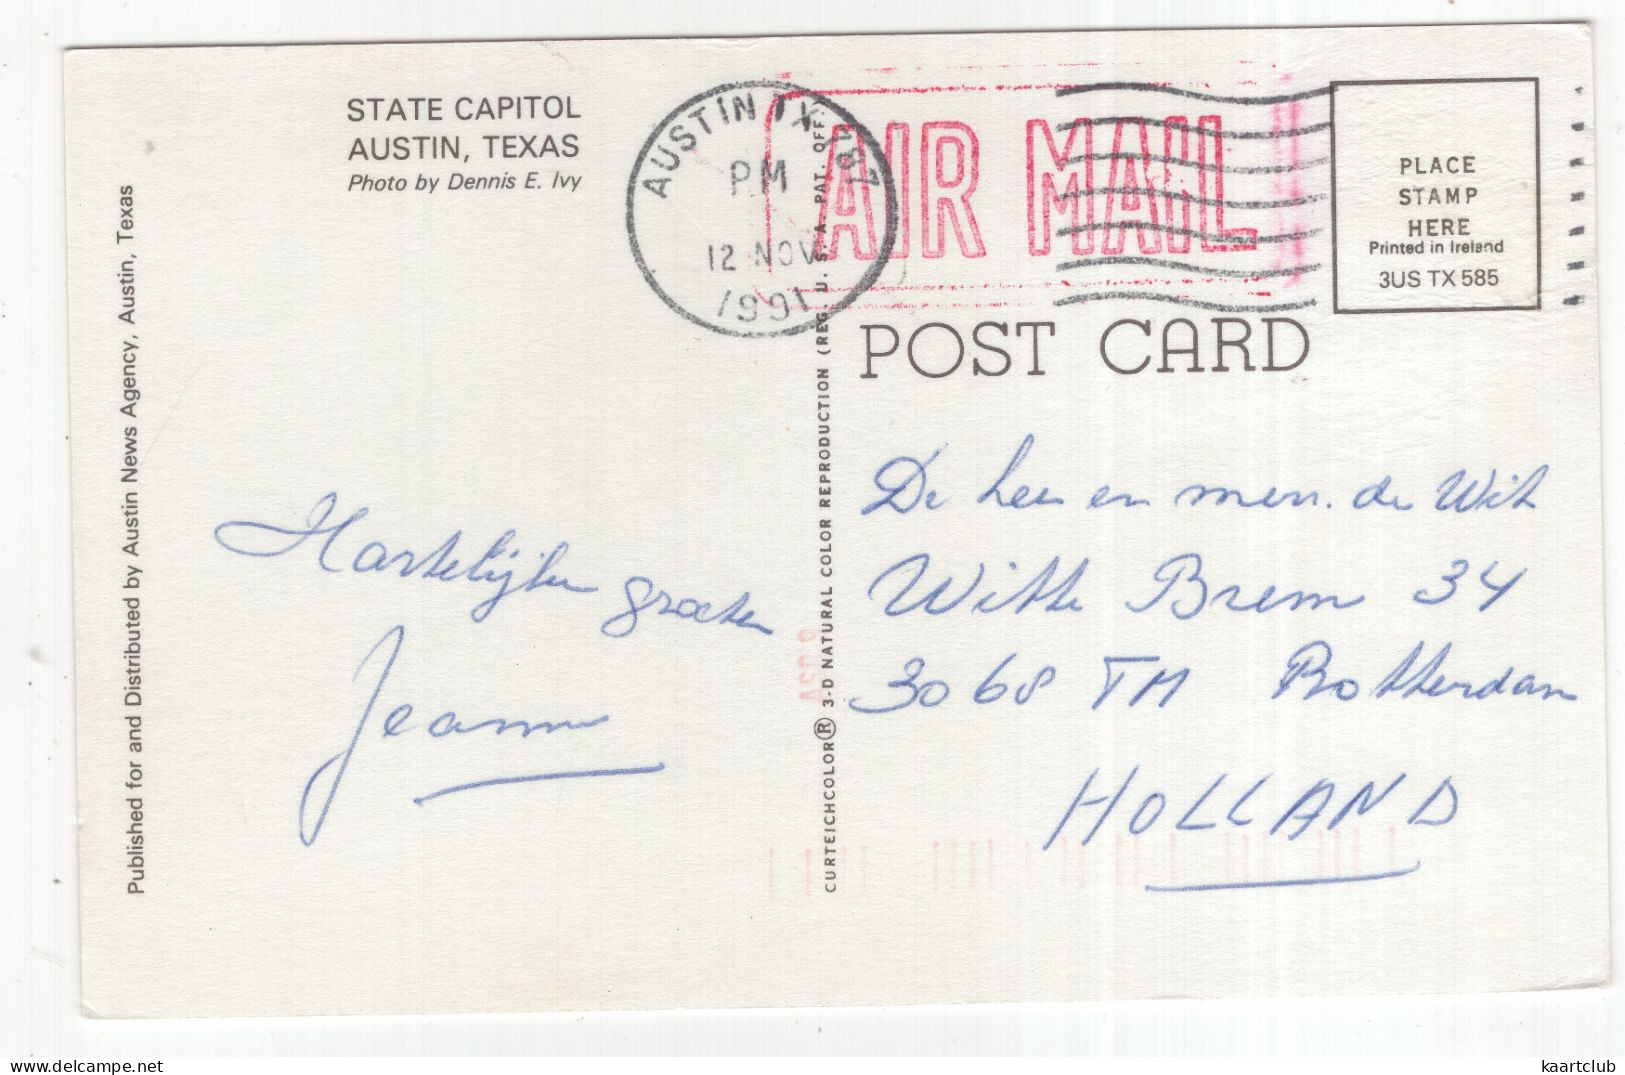 STATE CAPITOL
AUSTIN, TEXAS
Photo by Dennis E. Ivy
Published for and Distributed by Austin News Agency, Austin, Texas
AUSTIN TX 787
PM
12 NOV
1991
AIR MAIL
PLACE
STAMP
HERE
Printed in Ireland
3US TX 585
POST CARD
CURTEICHCOLOR® 3-D NATURAL COLOR REPRODUCTION (REG. U. S. A. PAT. OFF.)
Hartelijke
groeten
Jeanne
De heer en mevr. de Wit
Witte Brem 34
3068 TM Rotterdam
HOLLAND
kaartclub
www.delcampe.net